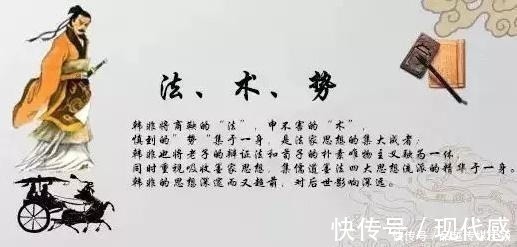 法、术、势
韩非将商鞅的“法”,申不害的“术”
慎到的“势”集于一身,是法家思想的集大成者;
韩非也将老子的辩证法和荀子的朴素唯物主义融为一体,
同时重视吸收善家思想,集儒道善法四大思想流派的精华于一身。
韩非的思想深邃而又超前,对后世影响深远。
快传号/现代感